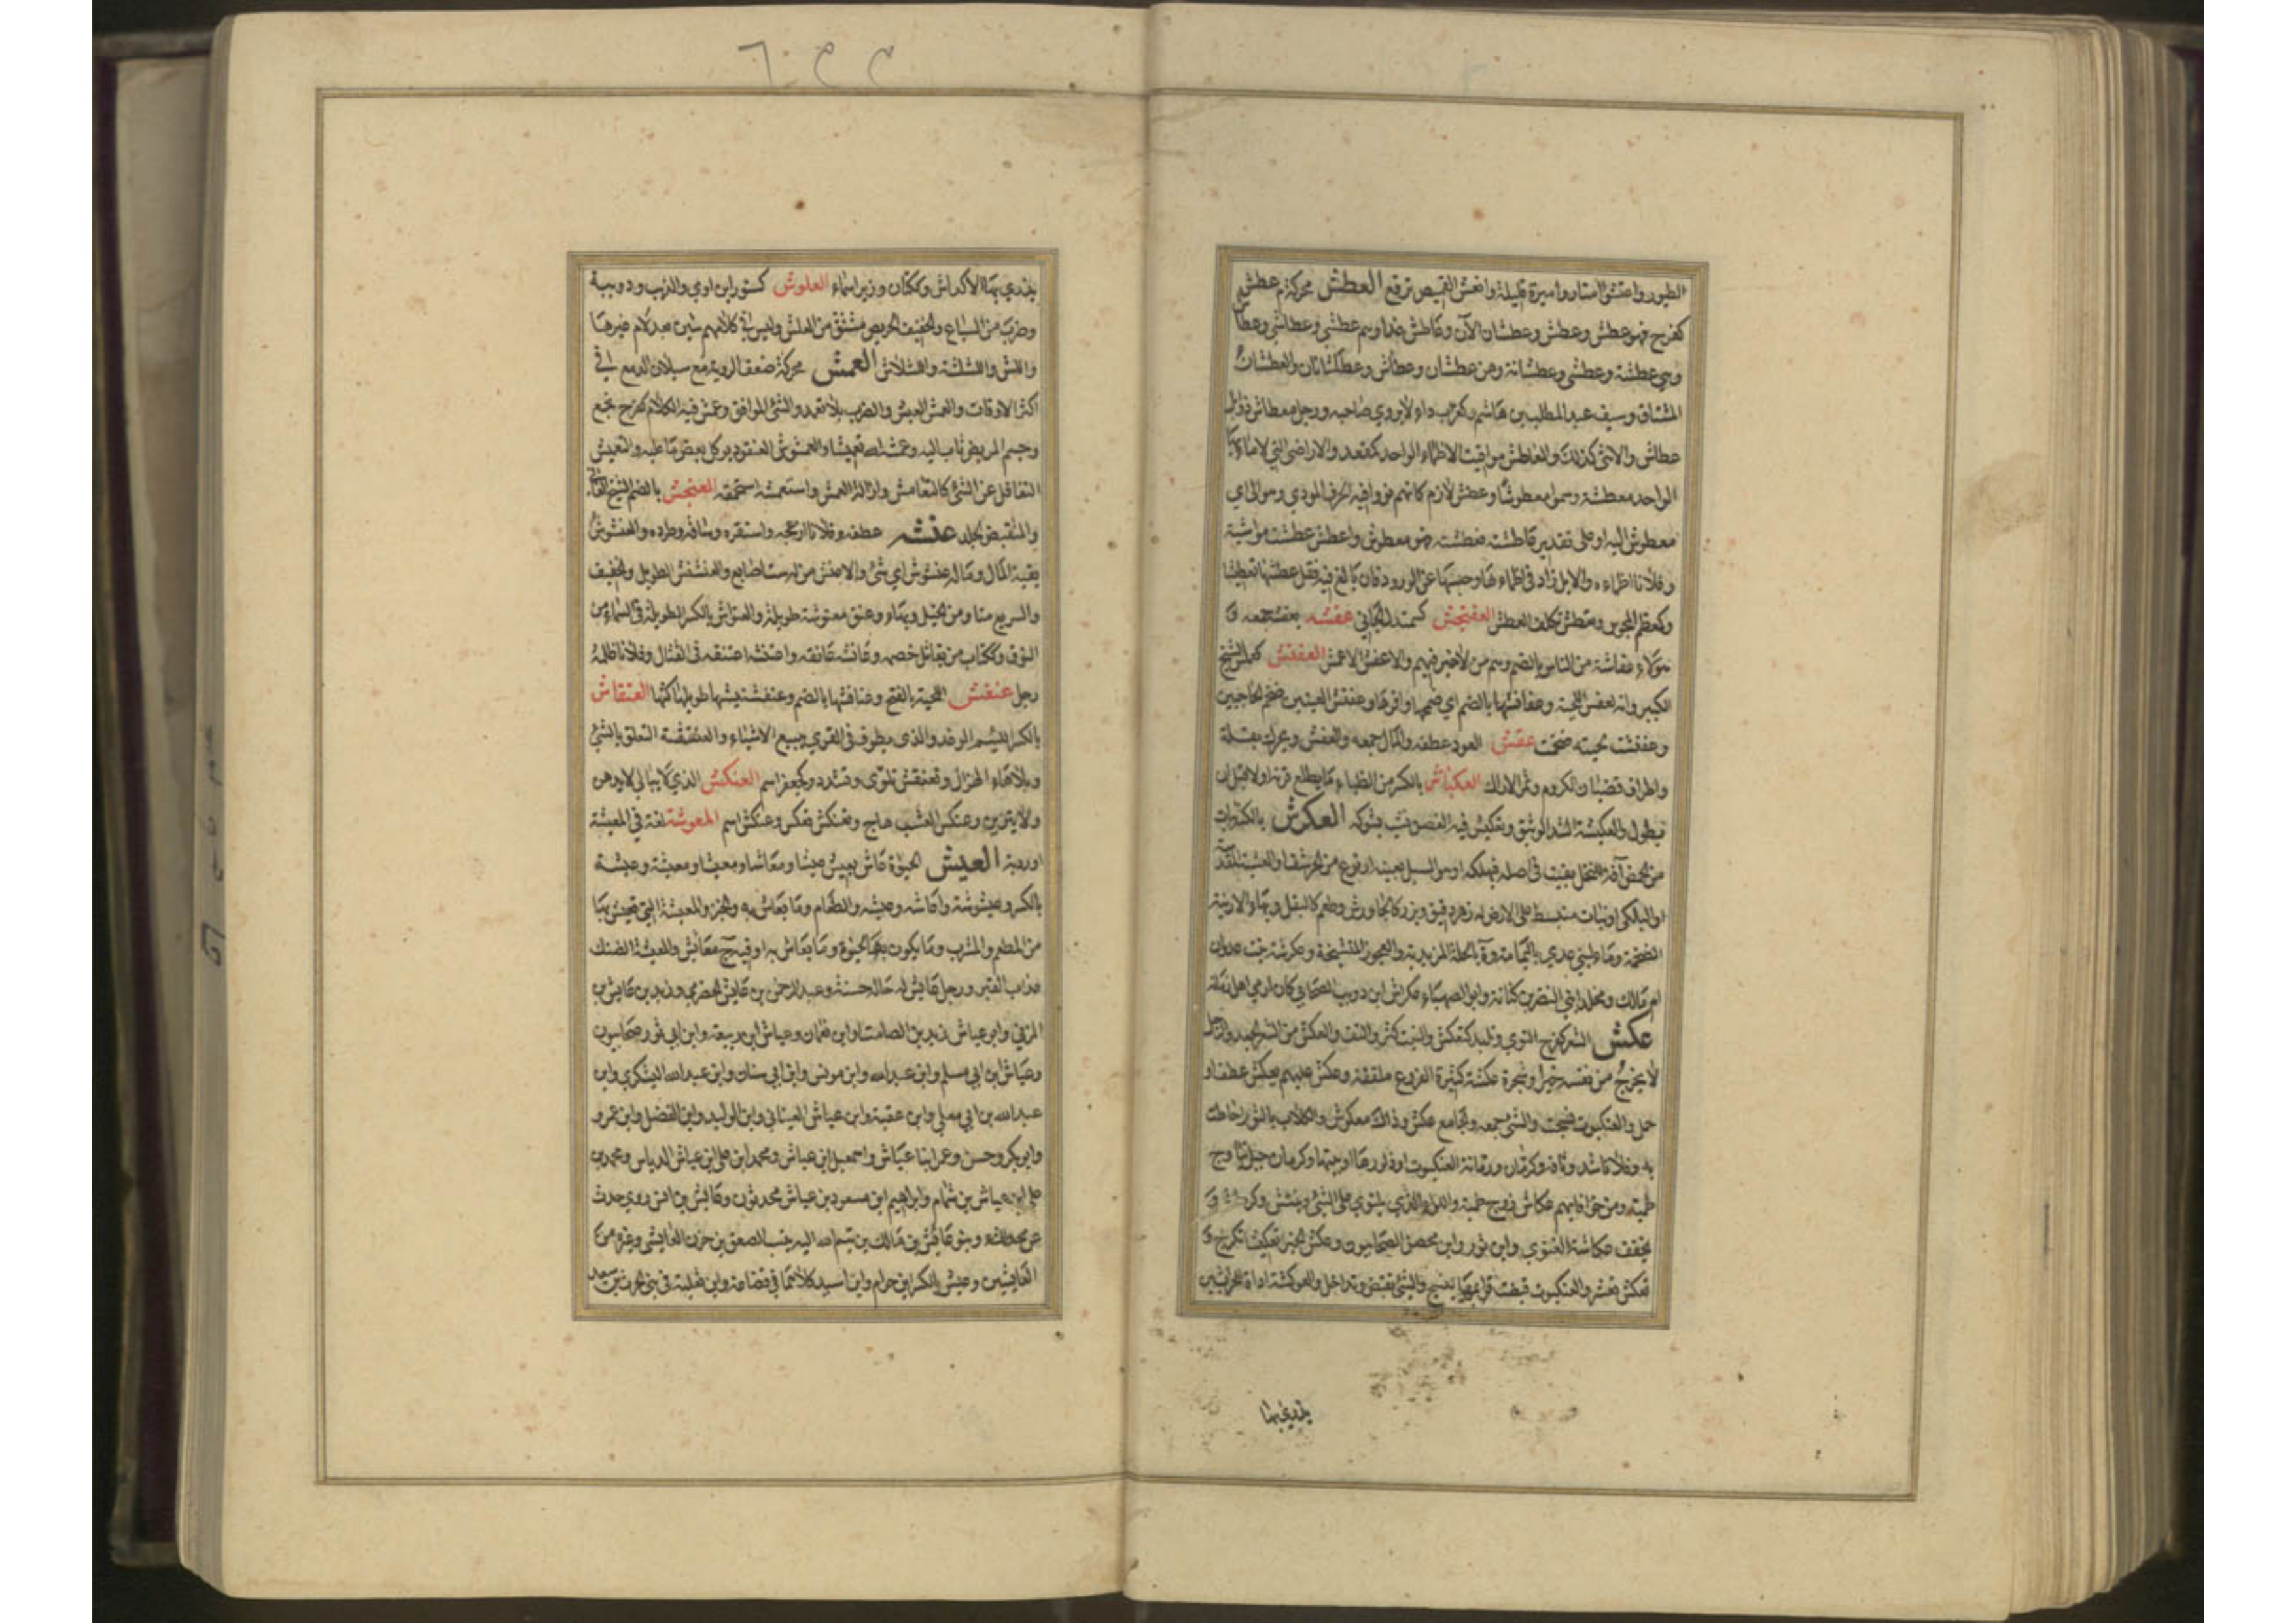 الطيور واعتشوا امتاروا ميرة قليلة وانعش القميص ترقع العطش محركة م عطش
كفرح فهو عطش وعطش وعطشان الآن وعاطش غدا وهم عطشى وعطاشى وعطاش
وهي عطشة وعطشى وعطشانة وهن عطشان وعطاش وعطشانات والعطشان
المشتاق وسيف عبد المطلب بن هاشم وكغراب داء لا يروي صاحبه ورجل معطاش ذو ابل
عطاش والانثى كذلك والمعاطش مواقيت الاظماء الواحد كمقعد والاراضي التي لا ماء بها
الواحد معطشة وسموا معطوشا وعطش لازم
معطوش اليه او على تقدير عاطشته فعطشته فهو معطوش واعطش عطشت مواشيه
وفلانا اظماءه والابل زاد في اظمائها وحبسها عن الورود فان بالغ فيه فقل عطشها تعطيشا
وكمعظم المحبوس وتعطش تكلف العطش العفنجش كسمندل الجافي عفشه يعفشه جمعه و
هؤلاء عفاشة من الناس بالضم وهم من لا خير فيهم والاعفش الاعمش العفنش كعملس الشيخ
الكبير وانه لعفنش اللحية وعفانشها بالضم اي ضخمها وافرها وعفنش العينين ضخم الحاجبين
وعفنشت لحيته ضخمت عقش العود عطفه والمال جمعه والعقش ويحرك بقلة
واطراف قضبان الكروم وثمر الاراك العكباش بالكسر من الظباء ما يطلع قرنه اولا قبل ان
يطول والعكبشة الشد الوثيق وتعكبش فيه الغصون نشب بشوكه العكرش بالكسر نبات
من الحمض آفة للنخل ينبت في اصله فيهلكه او هو السبل بعينه او نوع من الحرشف او العشبة المقدسة
او البلكى او نبات منبسط على الارض له زهر دقيق وبزر كالجاورش وطعم كالبقل وبهاء الارنبة
الضخمة وماء لبني عدي باليمامة وة بالحلة المزيدية والعجوز المتشنجة وعكرشة بنت عدوان
ام مالك ومخلد ابني النضر بن كنانة وابو الصهباء عكراش ابن ذويب الصحابي كان ارمى اهل زمانه
عكش الشعر كفرح التوى وتلبد كتعكش والنبت كثر والتف والعكش من الشعر الجعد والرجل
لا يخرج من نفسه خيرا وشجرة عكشة كثيرة الفروع ملتفة وعكش عليهم يعكش عطف او
حمل والعنكبوت نسجت والشئ جمعه والجامع عكش وذاك معكوش والكلاب بالثور احاطت
به وفلانا شد وثاقه وكرمان ورمانة العنكبوت او ذكورها او بيتها وكرمان جبل يناوح
طمية ومن خرافاتهم عكاش زوج طمية واللواء الذي يلتوي على الشئ وينتشر وكرمانة و
يخفف عكاشة الغنوي وابن ثور وابن محصن الصحابيون وعكش الخبز تعكيشا تكرج و
تعكش تعسر والعنكبوت قبضت قوائمها ينسج والشئ تقبض وتداخل والعوكشة اداة للحراثين
يذري بها
يذري بها الاكداس وككتان وزبير اسماء العلوش كسنور ابن اوي والذئب ودويبة
وضرب من السباع والخفيف الحريص مشتق من العلش وليس في كلامهم شين بعد لام غيرها
واللش واللشلشة واللشلاش العمش محركة ضعف الروية مع سيلان الدمع في
اكثر الاوقات والعمش العيش والضرب بلا تعمد والشئ الموافق وعمش فيه الكلام كفرح نجع
وجسم المريض ثاب اليه وعمشه الله تعميشا والعمشوش العنقود يؤكل بعض ما عليه والتعميش
التغافل عن الشئ كالتعامش وازالة العمش واستعمشه استحمقه العنجش بالضم الشيخ الفاني
والمنقبض الجلد عنشه عطفه وفلانا ازعجه واستفزه وساقه وطرده والعنشوش
بقية المال وما له عنشوش اي شئ والاعنش من له ست اصابع والعنشنش الطويل والخفيف
والسريع منا ومن الخيل وبهاء وعنق معنوشة طويلة والعناش بالكسر الطويلة في السماء من
النوق وككتاب من يقاتل خصمه وعانشه عانقه واعتنشه اعتنقه في القتال وفلانا ظلمه
رجل عنفش اللحية بالفتح وعنافشها بالضم وعنفشيشها طويلها كثها العنقاش
بالكسر اللئيم الوغد والذي يطوف في القرى يبيع الاشياء والعنقشة التعلق بالشئ
وبلا هاء الهزال وتعنقش تلوى وتشدد وكجعفر اسم العنكش الذي لا يبالي ان لا يدهن
ولا يتزين وعنكش العشب هاج وتعنكش تعكش وعنكش اسم المعوشة لغة في المعيشة
اوردية العيش الحيوة عاش يعيش عيشا ومعاشا ومعيشا ومعيشة وعيشة
بالكسر وعيشوشة واعاشه وعيشه والطعام وما يعاش به والخبز والمعيشة التي تعيش بها
من المطعم والمشرب وما يكون به الحيوة وما يعاش به او فيه ج معايش والمعيشة الضنك
عذاب القبر ورجل عايش له حالة حسنة وعبد الرحمن بن عايش الحضرمي وزيد بن عايش
المزني وابو عياش زيد بن الصامت او ابن نعمان وعياش ابن ربيعة وابن ابي ثور صحابيون
وعياش ابن ابي مسلم وابن عبد الله وابن مونس وابن ابي سنان وابن عبد الله اليشكري وابن
عبد الله بن ابي معلى وابن عقبة وابن عياش القتباني وابن الوليد وابن الفضل وابن عمرو
وابو بكر وحسن وعمر ابنا عياش واسمعيل ابن عياش ومحمد ابن علي ابن عياش الدباس ومحمد بن
علي ابن عياش بن شمام وابراهيم ابن مسعود بن عياش محدثون وعايش بن انس روى حدث
وبنو عايش بن مالك بن تيم الله اليه ينسب الصعق بن حزن العايشي وغيره من
العايشيين وعيش بالكسر ابن حرام وابن اسيد كلاهما في قضاعة وابن ثعلبة في بني الحرث بن سعد